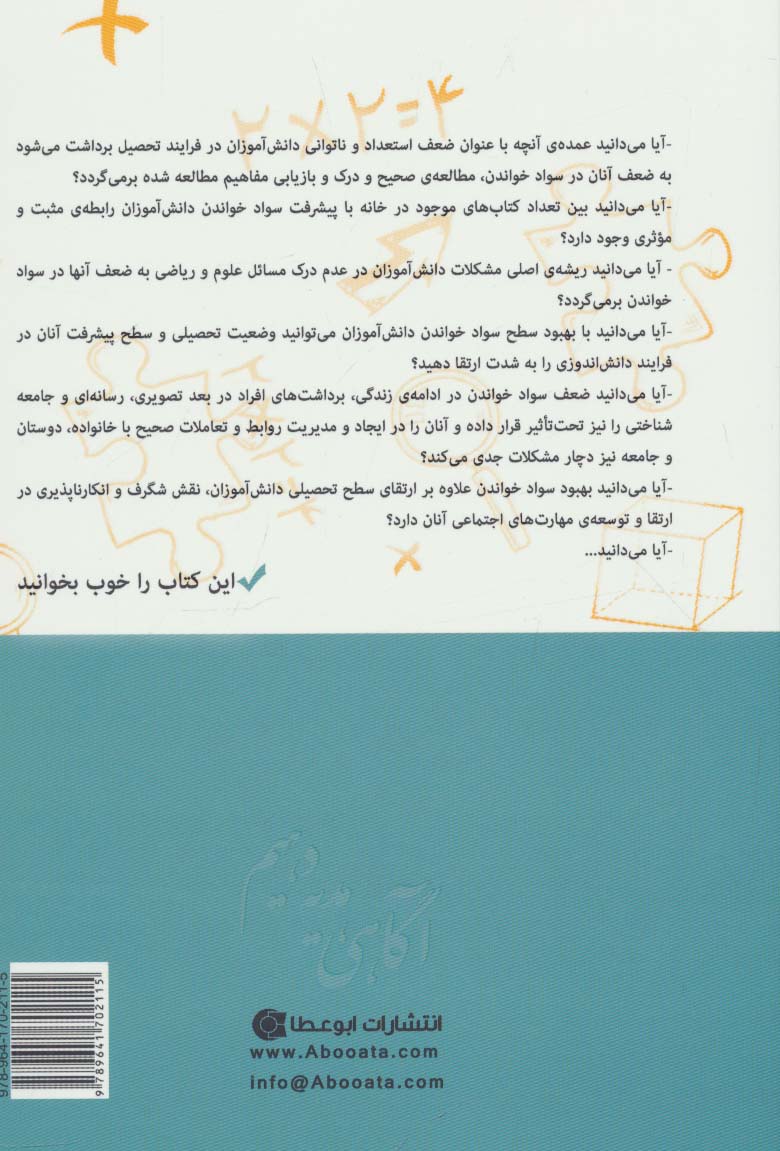 ۲×۲=۴
-آیا می‌دانید عمده‌ی آنچه با عنوان ضعف استعداد و ناتوانی دانش‌آموزان در فرایند تحصیل برداشت می‌شود
به ضعف آنان در سواد خواندن، مطالعه‌ی صحیح و درک و بازیابی مفاهیم مطالعه شده برمی‌گردد؟
-آیا می‌دانید بین تعداد کتاب‌های موجود در خانه با پیشرفت سواد خواندن دانش‌آموزان رابطه‌ی مثبت و
مؤثری وجود دارد؟
- آیا می‌دانید ریشه‌ی اصلی مشکلات دانش‌آموزان در عدم درک مسائل علوم و ریاضی به ضعف آنها در سواد
خواندن برمی‌گردد؟
-آیا می‌دانید با بهبود سطح سواد خواندن دانش‌آموزان می‌توانید وضعیت تحصیلی و سطح پیشرفت آنان در
فرایند دانش‌اندوزی را به شدت ارتقا دهید؟
-آیا می‌دانید ضعف سواد خواندن در ادامه‌ی زندگی، برداشت‌های افراد در بعد تصویری، رسانه‌ای و جامعه
شناختی را نیز تحت‌تأثیر قرار داده و آنان را در ایجاد و مدیریت روابط و تعاملات صحیح با خانواده، دوستان
و جامعه نیز دچار مشکلات جدی می‌کند؟
-آیا می‌دانید بهبود سواد خواندن علاوه بر ارتقای سطح تحصیلی دانش‌آموزان، نقش شگرف و انکارناپذیری در
ارتقا و توسعه‌ی مهارت‌های اجتماعی آنان دارد؟
-آیا می‌دانید...
این کتاب را خوب بخوانید
آگاهی هدیه دهیم
انتشارات ابوعطا
www.Abooata.com
info@Abooata.com
978-964-170-211-5
9 789641 702115